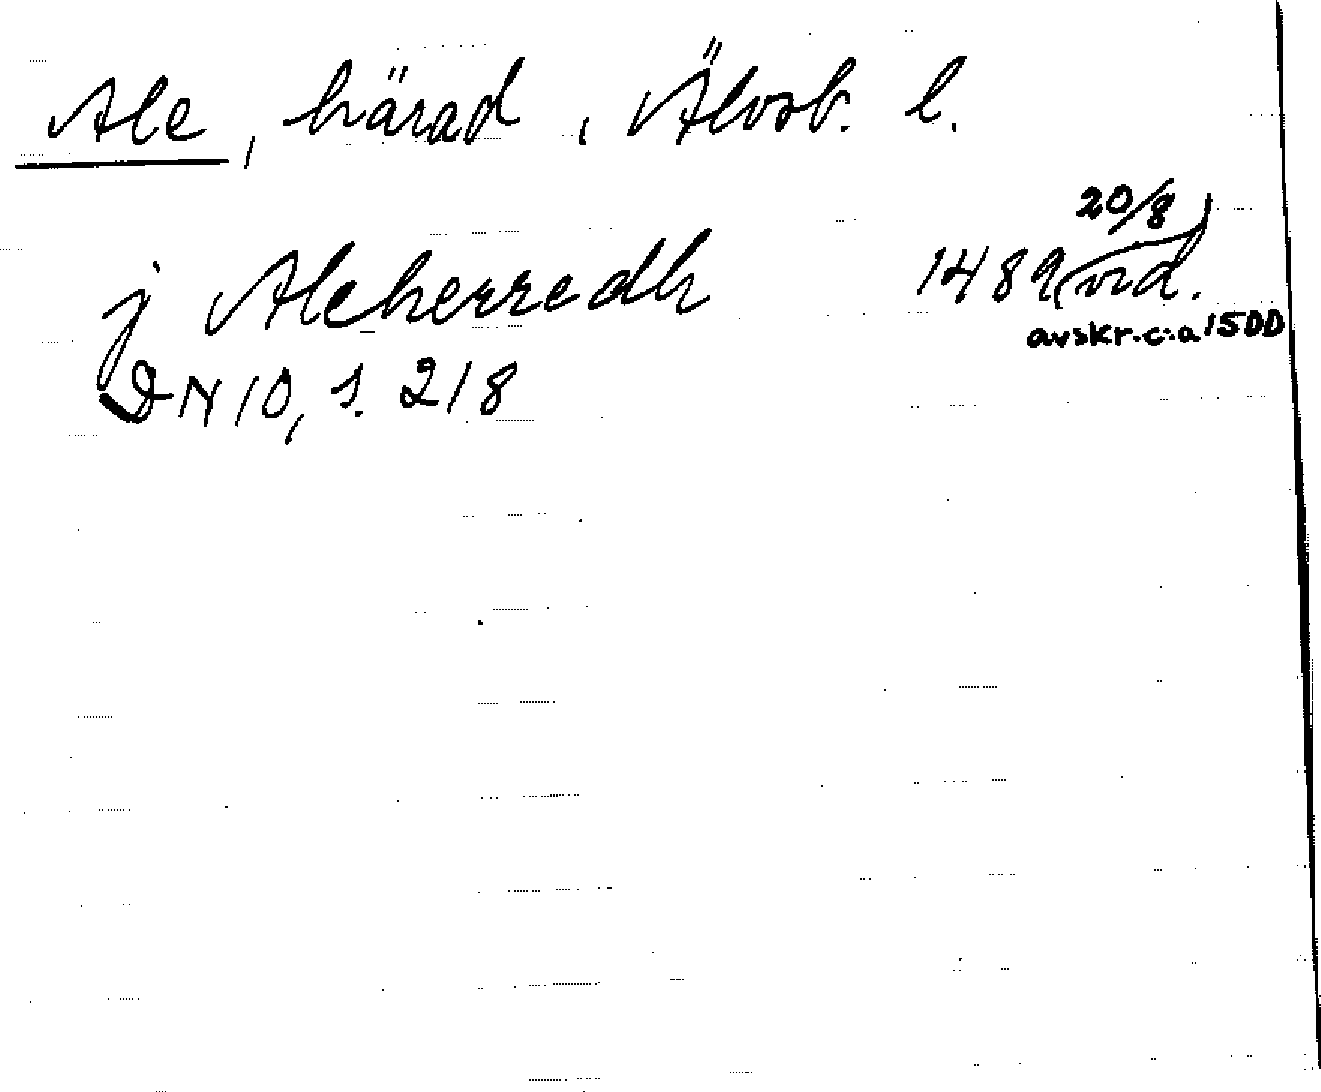 Ale, härad, Älvsb. l.
20/8
j Aleherredh 1489 vid.
avskr. c:a 1500
DN 10, s. 218